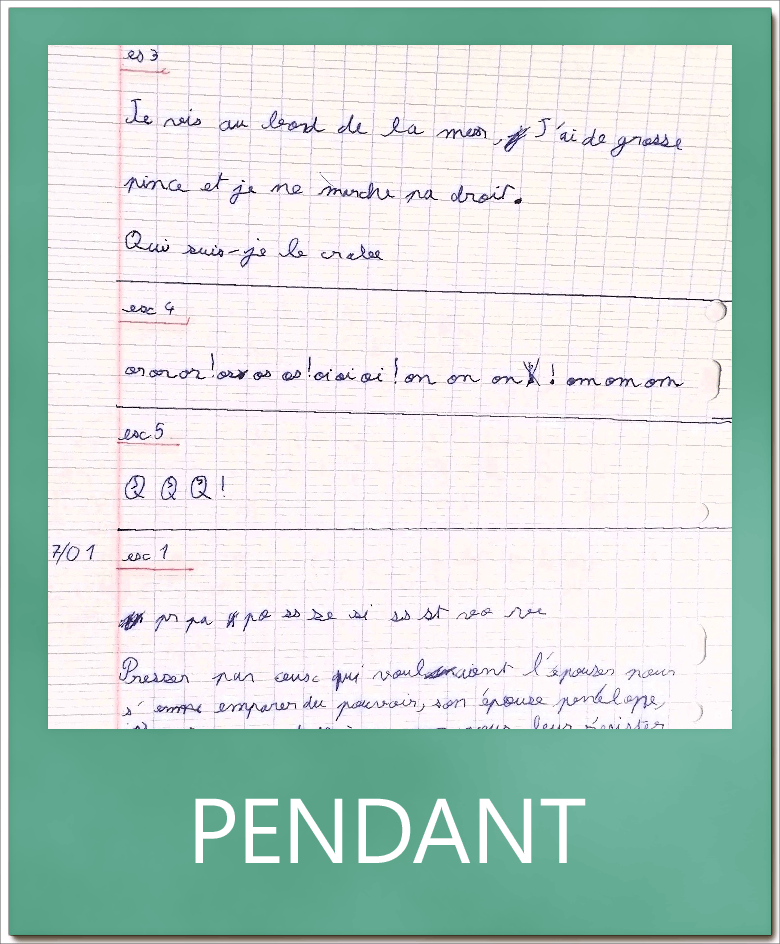 es 3
Je vis au bord de la mer, J'ai de grosse
pince et je ne marche pa droit.
Qui suis-je le crabe
esc 4
or or or ! os os os ! oi oi oi ! on on on ! om om om
esc 5
Q Q Q !
7/01 esc 1
pr pa po ss se si ss st
Presser par ceux qui voulaient l'épouser pour
s' emparer du pouvoir, son épouse penélope,
leur
PENDANT